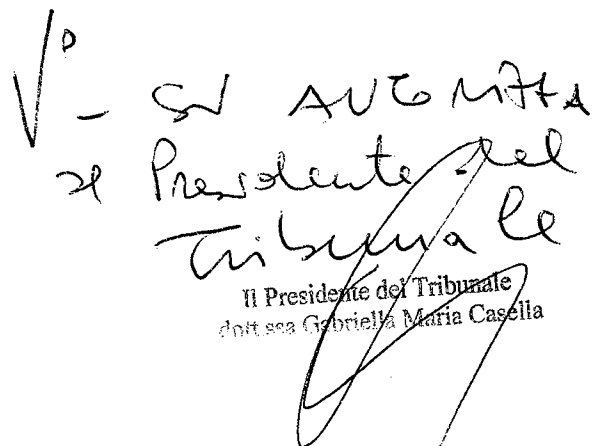 V° - SI AUTORIZZA
Il Presidente del
Tribunale
Il Presidente del Tribunale
dott.ssa Gabriella Maria Casella